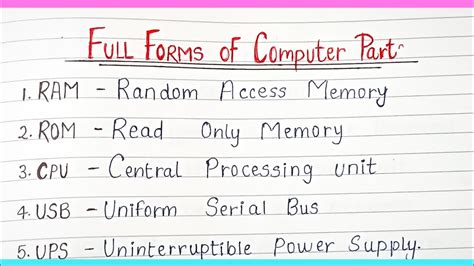 Full Forms of Computer Part.
1. RAM – Random Access Memory
2. ROM – Read Only Memory
3. CPU – Central Processing unit
4. USB – Uniform Serial Bus
5. UPS – Uninterruptible Power Supply.